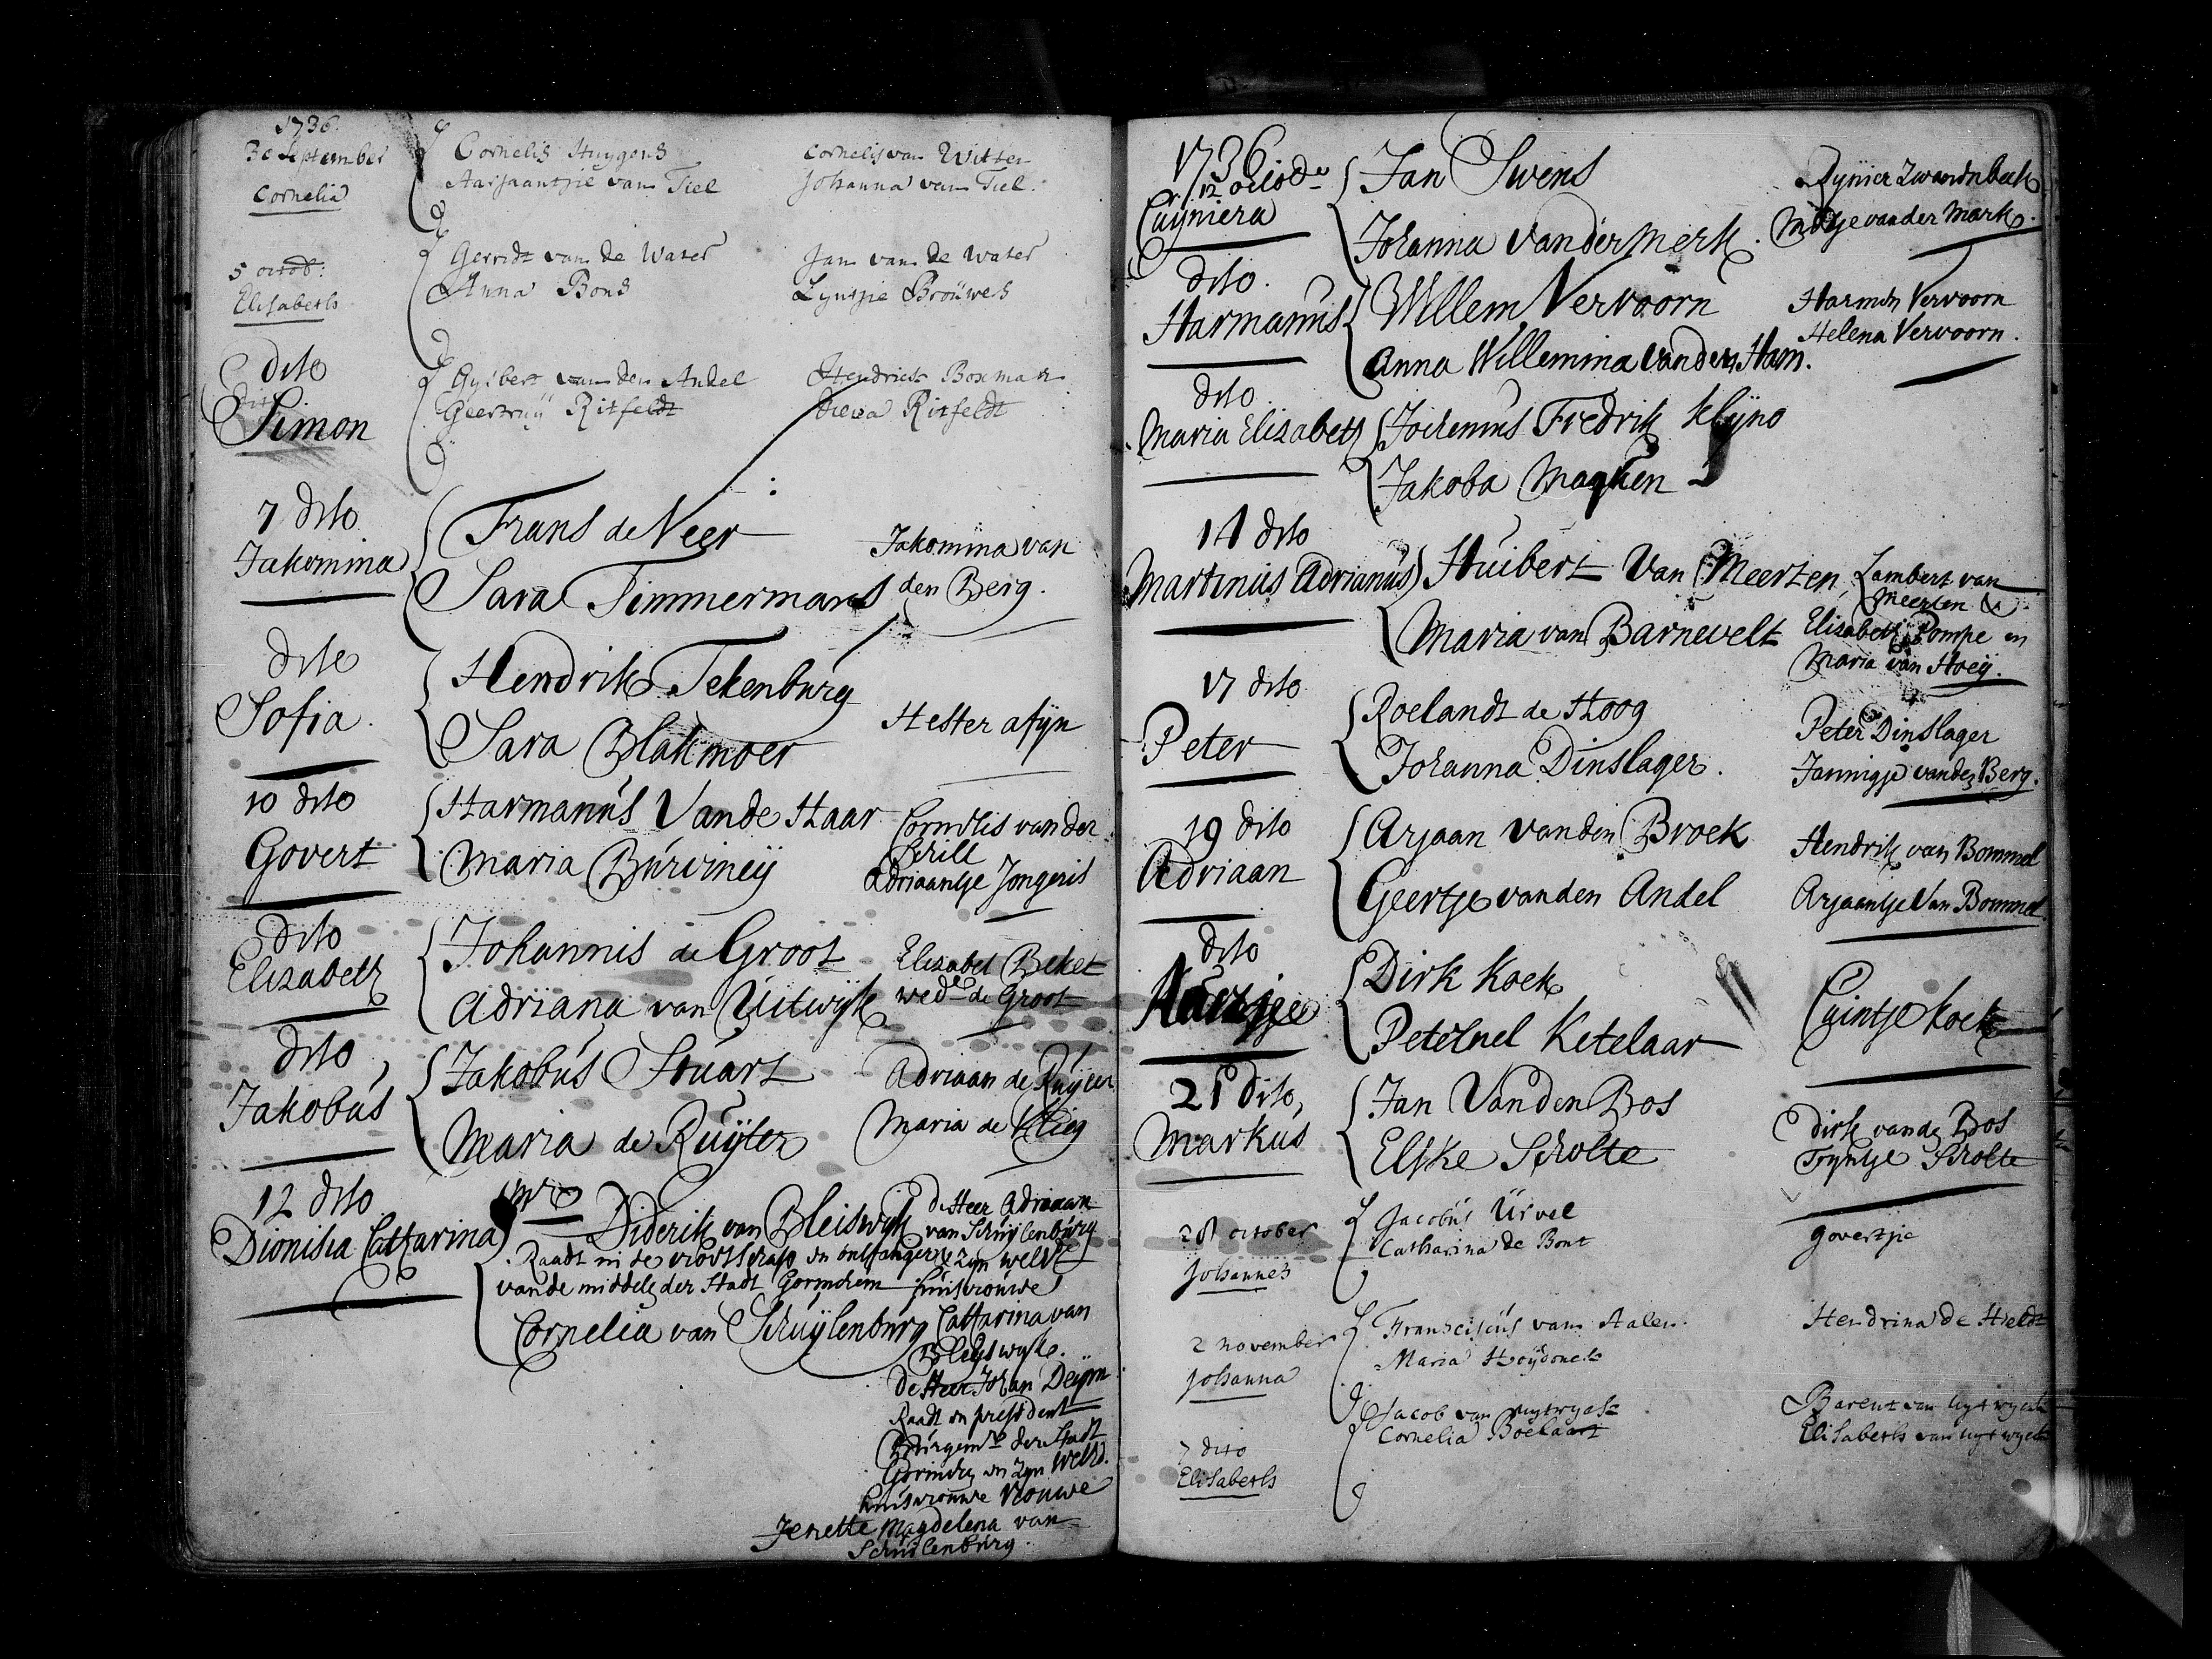 1736.
30 September
Cornelia
Cornelis Huygens
Aarjaantjie van Tiel
Cornelis van Witter
Johanna van Tiel.
5 octob:
Elisabeth
Gerridt van de Water
Anna Bons
Jan van de Water
Lyntjie Brouwes
dito
Simon
Gysbert van den Andel
Geertruij Ritfeldt
Hendrick Boxman
Ritfeldt
7 dito
Jakomina
Frans de Neer
Sara Timmermans
Jakomina van
den Berg.
dito
Sofia.
Hendrik Tekenburg
Sara Blakmoer
Hester afyn
10 dito
Govert
Harmanus Vande Haar
Maria Burviney
Cornelis vander
Grill
Adriaantje Jongeris
dito
Elizabeth
Johannis de Groot
Adriana van Uitwyk
Elizabet Beket
wede de Groot
dito
Jakobus
Jakobus Stuart
Maria de Ruyter
Adriaan de Ruyter
Maria de
12 dito
Dionisia Catharina
Mr
Diderik van Bleiswyk
Raadt in de vroetschap en ontfanger
vande middelen der Stadt Gorinchem
Cornelia van Schuylenburg
de Heer Adriaan
van Schuylenburg
en zyn weled
huisvrouwe
Catharina van
Bleyswyk.
de Heer Johan Deym
Raadt en president
Burgemr der Stadt
Gorinchem en zyn Weled.
huisvrouwe Vrouwe
Jenette Magdelena van
Schuilenburg.
1736
12 octob
Cuyniera
Jan Swens
Johanna vander Merk.
Rynier Zwaardnbeck
Metje vander Mark.
dito.
Harmanus
Willem Vervoorn
Anna Willemina vander Ham.
Harmen Vervoorn
Helena Vervoorn.
dito.
Maria Elizabeth
Jochemus Fredrik Klyno
Jakoba Maquen
14 dito
Martinus Adrianus
Huibert Van Meerten
Maria van Barnevelt
Lambert van
Meerten &
Elizabeth Pompe en
Maria van Hoeij.
17 dito
Peter
Roelandt de Hoog
Johanna Dinslager.
Peter Dinslager
Jannigje vanden Berg.
19 dito
Adriaan
Arjaan vanden Broek
Geertje vanden Andel
Hendrik van Bommel
Arjaantje Van Bommel.
dito
Dirk Koek
Peternel Ketelaar
Cuintje Koek
21 dito,
Markus
Jan Vanden Bos
Elske Scholte
Dirk vande Bos
Tryntje Scholte
28 october
Johannes
Jacobus Urvel
Catharina de Bont
govertjie
2 november
Johanna
Franscisus van Aalen.
Maria Hoydonck
Hendrina de Heldt
7 dito
Elisabeth
Jacob van uytwyck
Cornelia Boelaart
Barent van uytwyck
Elisabeth van uytwyck